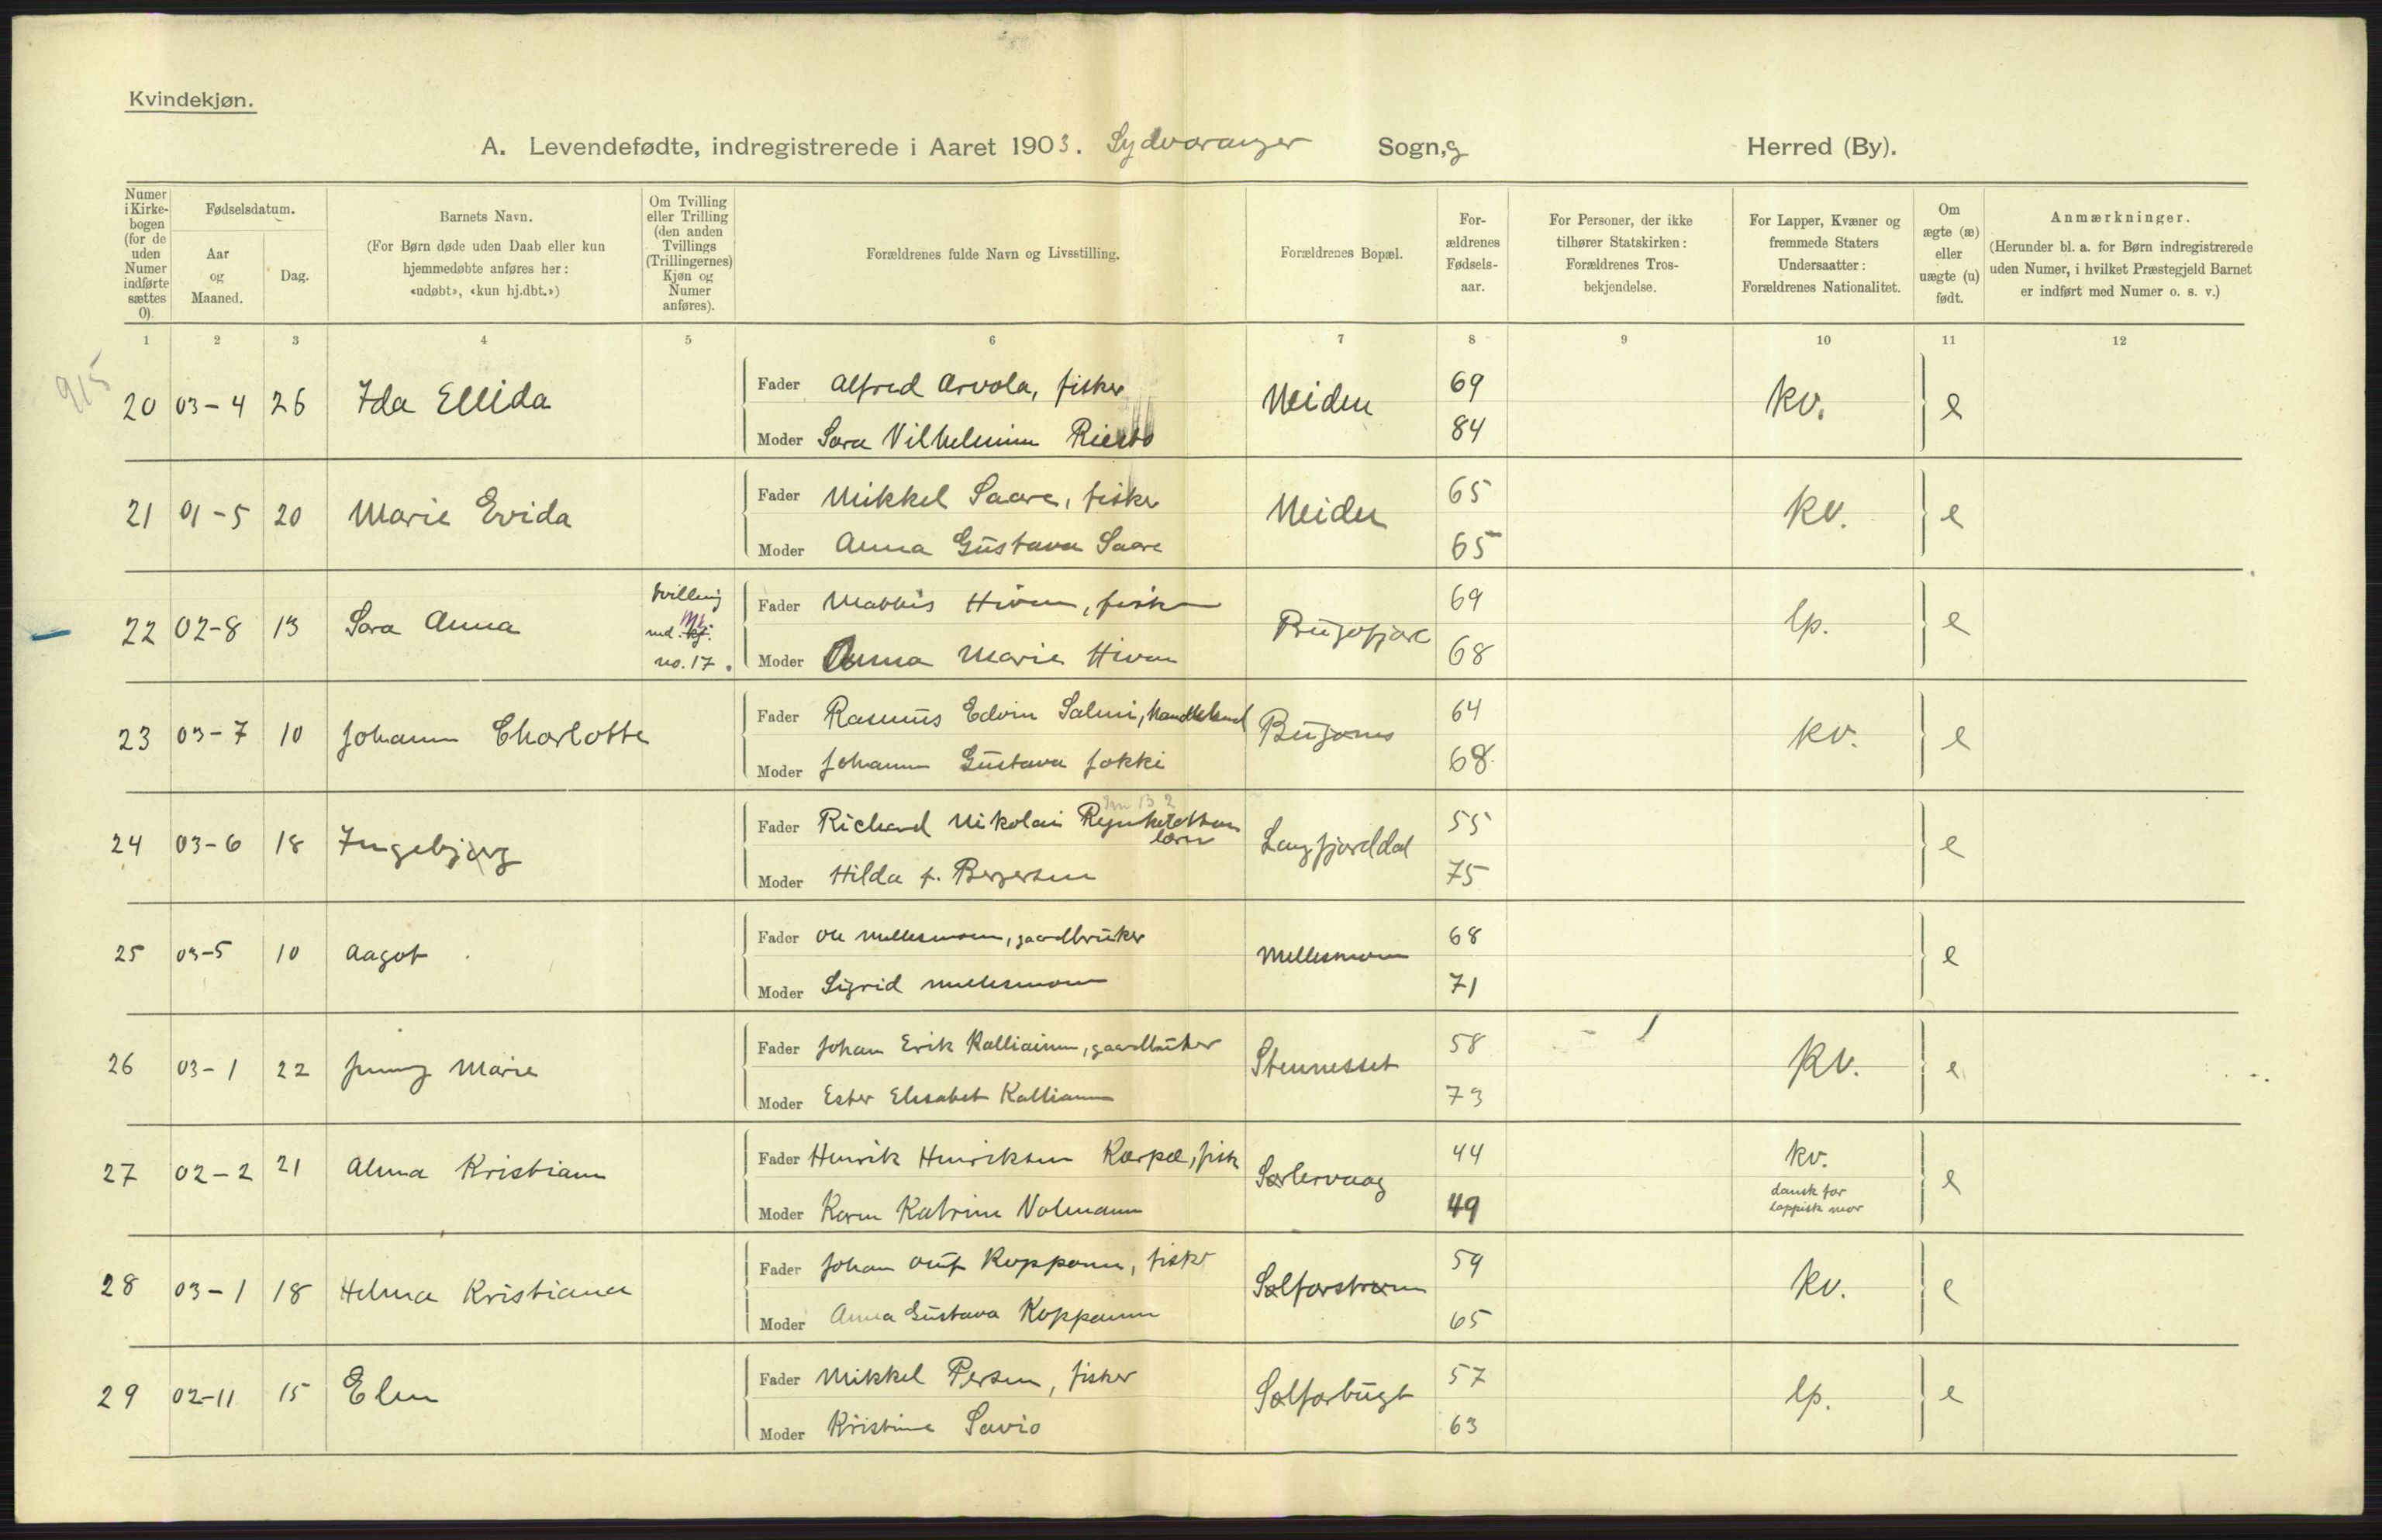 Kvindekjøn.
A. Levendefødte, indregistrerede i Aaret 1903. Sydvaranger Sogn, og Herred (By).
Numer i Kirkebogen (for de uden Numer indførte sættes 0).
Fødselsdatum.
Aar og Maaned.
Dag.
Barnets Navn.
(For Børn døde uden Daab eller kun hjemmedøbte anføres her: «udøbt», «kun hj.dbt.»)
Om Tvilling eller Trilling (den anden Tvillings (Trillingernes) Kjøn og Numer anføres).
Forældrenes fulde Navn og Livsstilling.
Forældrenes Bopæl.
Forældrenes Fødselsaar.
For Personer, der ikke tilhører Statskirken: Forældrenes Trosbekjendelse.
For Lapper, Kvæner og fremmede Staters Undersaatter: Forældrenes Nationalitet.
Om ægte (æ) eller uægte (u) født.
Anmærkninger.
(Herunder bl. a. for Børn indregistrerede uden Numer, i hvilket Præstegjeld Barnet er indført med Numer o. s. v.)
1 2 3 4 5 6 7 8 9 10 11 12
915
20 03-4 26 Ida Ellida Fader Alfred Arvola, fisker Neiden 69 kv. e
Moder Sara Vilhelmine Riesto 84
21 01-5 20 Marie Evida Fader Mikkel Saare, fisker Neiden 65 kv. e
Moder Anna Gustava Saare 65
22 02-8 13 Sara Anna tvilling Fader Mathis Hiven, fisker Bugøfjord 69 lp. e
med. Mk. kj. no. 17. Moder Anna Marie Hiven 68
23 03-7 10 Johanne Charlotte Fader Rasmus Edvin Salmi, Bugønes 64 kv. e
Moder Johanne Gustava Jokki 68
24 03-6 18 Ingebjørg Fader Richard Nikolai Langfjorddal 55 e
Moder Hilda f. Bergersen 75
25 03-5 10 Aagot Fader Ole Mellesmoen, gaardbruker Mellesmoen 68 e
Moder Sigrid Mellesmoen 71
26 03-1 22 Jenny Marie Fader Johan Erik Kalliainen, gaardbruker Stennesset 58 kv. e
Moder Ester Elisabet Kalliainen 73
27 02-2 21 Alma Kristiane Fader Henrik Henriksen Karpæ, fisk 44 kv. e
Moder Karen Katrine Volmann 49 dansk far lappisk mor
28 03-1 18 Helma Kristiana Fader Johan Koppanen, fisker Solfarstrøm 59 kv. e
Moder Anna Gustava Koppanen 65
29 02-11 15 Elen Fader Mikkel Persen, fisker Solfarbugt 57 lp. e
Moder Kristine Savio 63